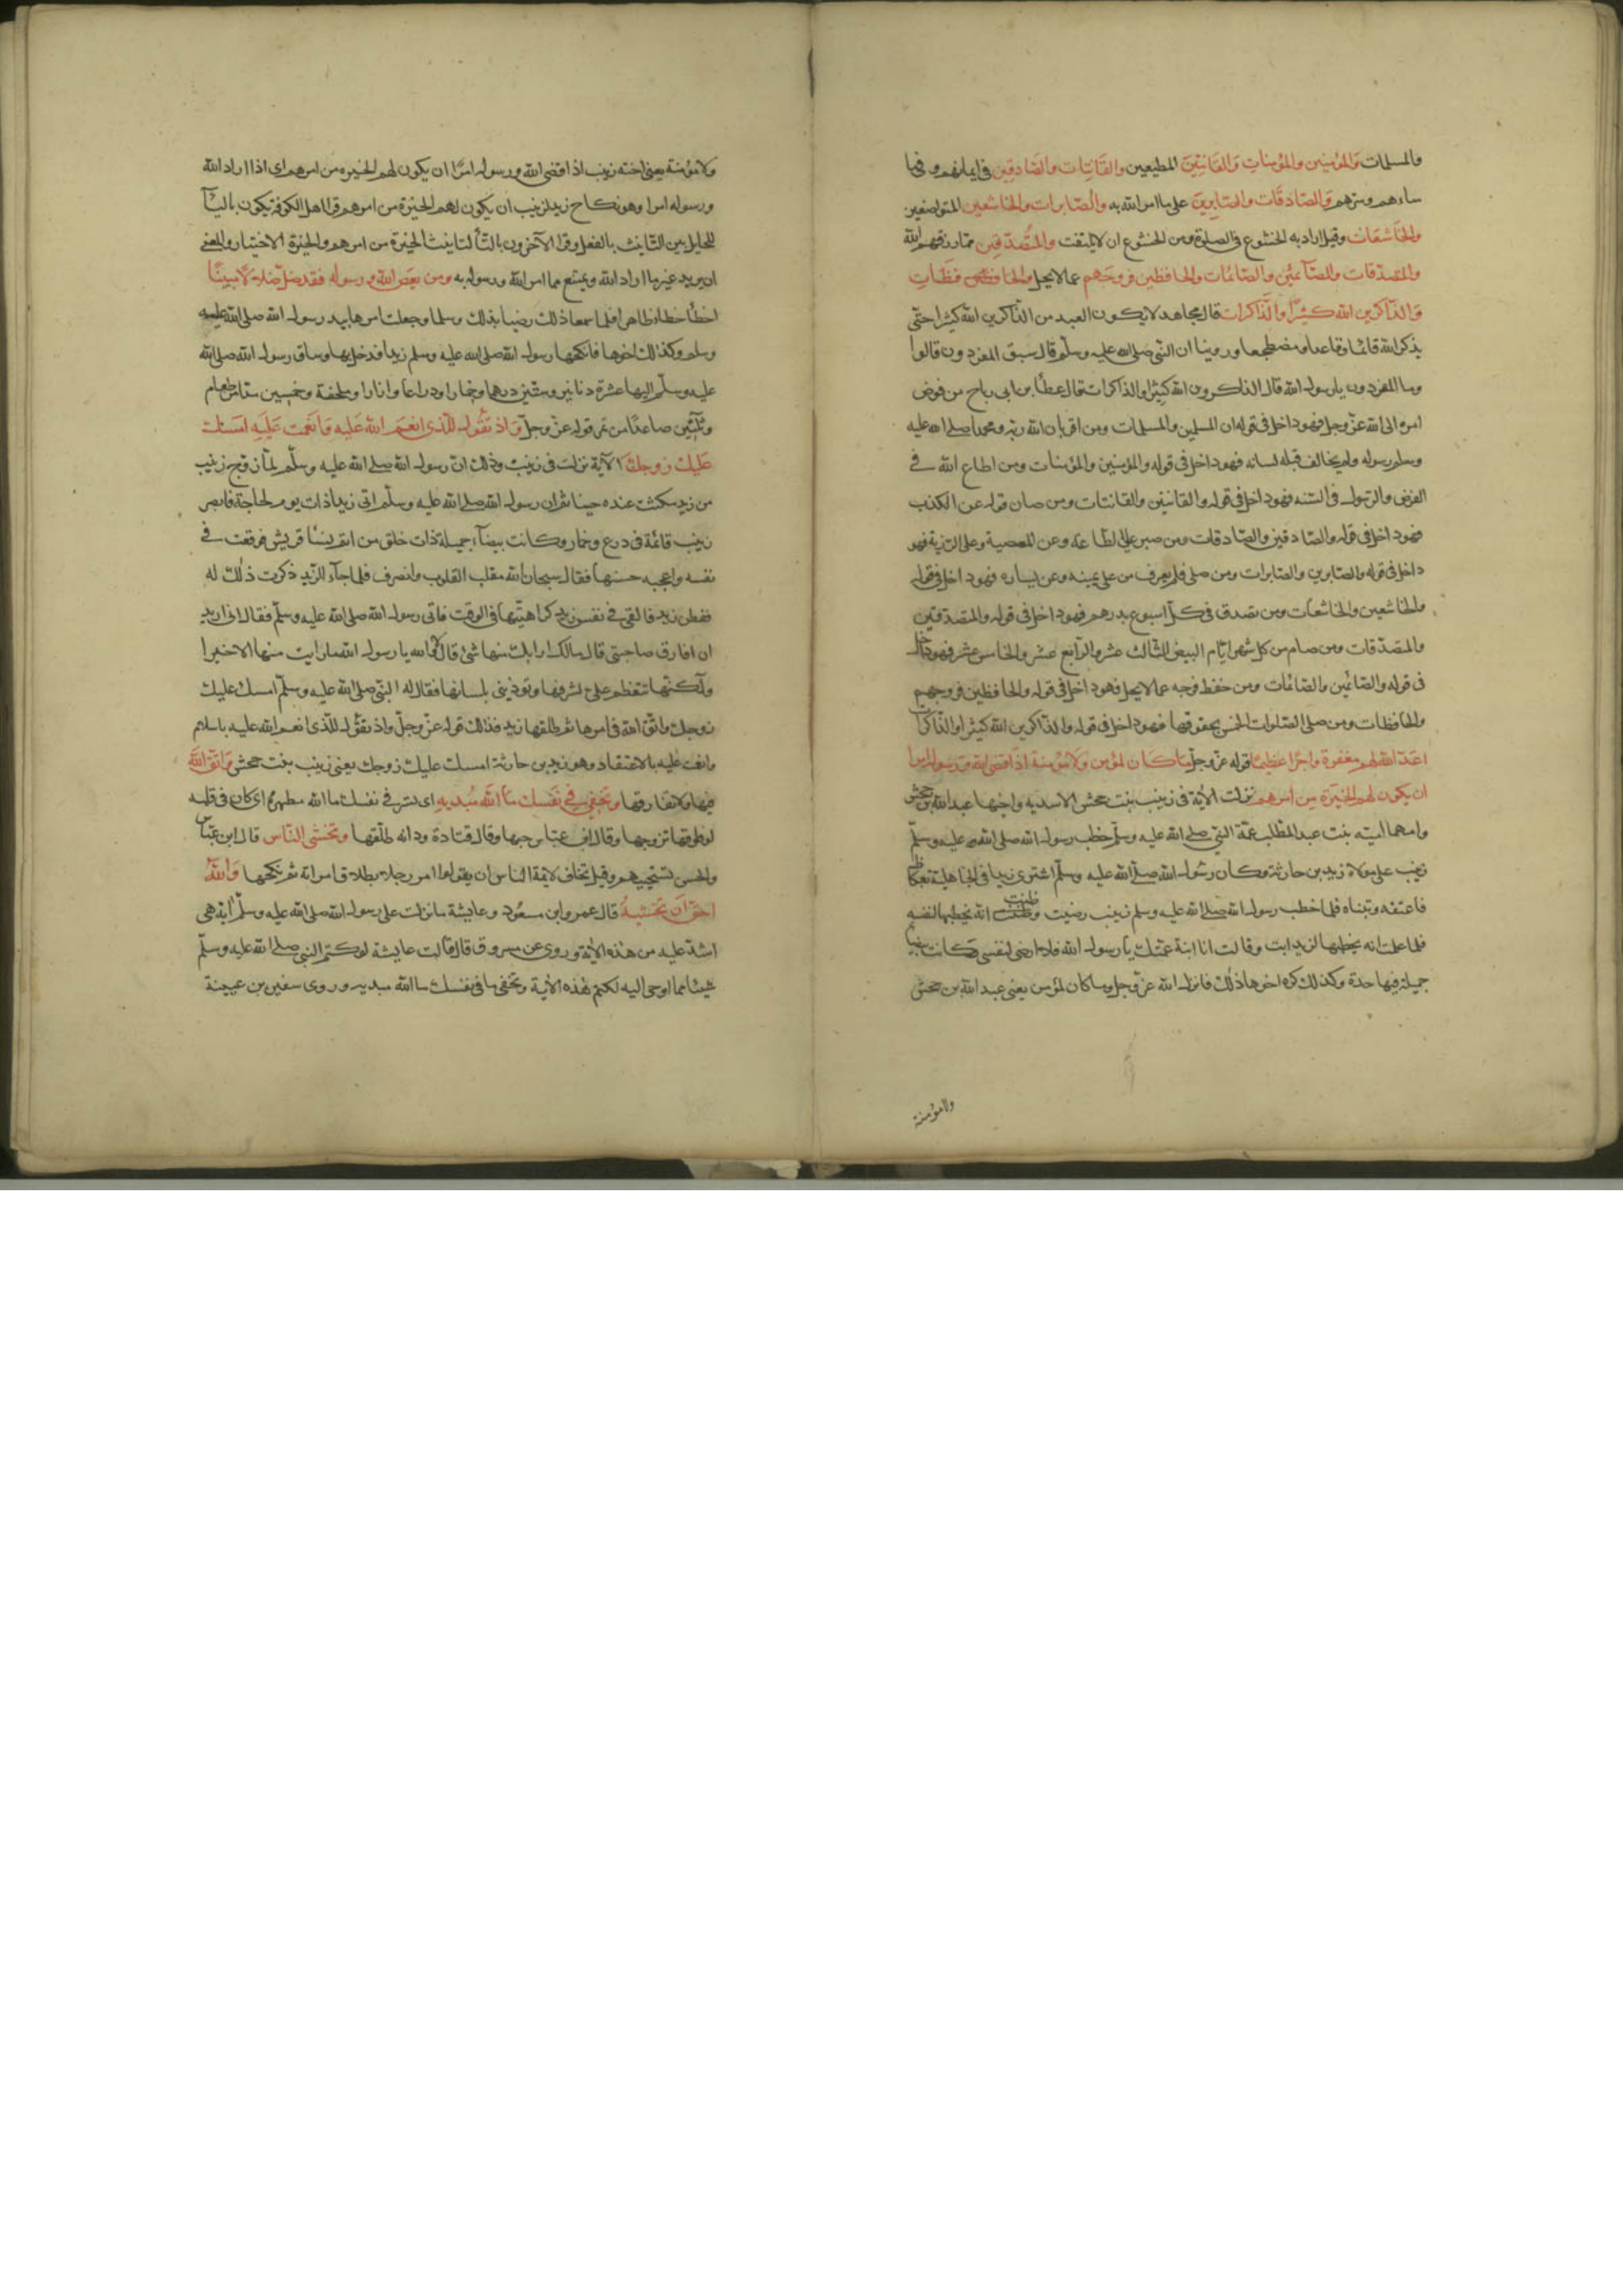 والمسلمات والمؤمنين والمؤمنات والقانتين المطيعين والقانتات والصادقين فى ايمانهم وفيما
ساءهم وسرهم والصادقات والصابرين على ما امر الله به والصابرات والخاشعين المتواضعين
والخاشعات وقيل اراد به الخشوع فى الصلوة ومن الخشوع ان لا يلتفت والمتصدقين مما رزقهم الله
والمتصدقات والصائمين والصائمات والحافظين فروجهم عما لا يحل والحافظات
والذاكرين الله كثيرا والذاكرات قال مجاهد لا يكون العبد من الذاكرين الله كثيرا حتى
يذكر الله قائما وقاعدا ومضطجعا وروينا ان النبى صلى الله عليه وسلم قال سبق المفردون قالوا
وما المفردون يا رسول الله قال الذاكرون الله كثيرا والذاكرات قال عطا بن ابى رباح من فوض
امره الى الله عز وجل فهو داخل فى قوله ان المسلمين والمسلمات ومن اقر بان الله ربه ومحمدا صلى الله عليه
وسلم رسوله ولم يخالف قلبه لسانه فهو داخل فى قوله والمؤمنين والمؤمنات ومن اطاع الله فى
الفرض والرسول فى السنه فهو داخل فى قوله والقانتين والقانتات ومن صان قوله عن الكذب
فهو داخل فى قوله والصادقين والصادقات ومن صبر على الطاعة وعن المعصية وعلى الرزية فهو
داخل فى قوله والصابرين والصابرات ومن صلى فلم يعرف من على يمينه وعن يساره فهو داخل فى قوله
والخاشعين والخاشعات ومن تصدق فى كل اسبوع بدرهم فهو داخل فى قوله والمتصدقين
والمتصدقات ومن صام من كل شهر ايام البيض الثالث عشر والرابع عشر والخامس عشر فهو داخل
فى قوله والصائمين والصائمات ومن حفظ فرجه عما لا يحل فهو داخل فى قوله والحافظين فروجهم
والحافظات ومن صلى الصلوات الخمس بحقوقها فهو داخل فى قوله والذاكرين الله كثيرا والذاكرات
اعد الله لهم مغفرة واجرا عظيما قوله عز وجل ما كان لمؤمن ولا مؤمنة اذا قضى الله ورسوله امرا
ان يكون لهم الخيرة من امرهم نزلت الاية فى زينب بنت جحش الاسديه واخيها عبد الله بن جحش
وامهما اميه بنت عبد المطلب عمة النبى صلى الله عليه وسلم خطب رسول الله صلى الله عليه وسلم
زينب على مولاه زيد بن حارثة وكان رسول الله صلى الله عليه وسلم اشترى زيدا فى الجاهلية بعكاظ
فاعتقه وتبناه فلما خطب رسول الله صلى الله عليه وسلم زينب رضيت وظنت انه يخطبها لنفسه
فلما علمت انه يخطبها لزيد ابت وقالت انا ابنة عمتك يا رسول الله فلا ارضى لنفسى وكانت بيضا
جميلة فيها حدة وكذلك كره اخوها ذلك فانزل الله عز وجل وما كان لمؤمن يعنى عبد الله بن جحش
ولا مؤمنة
ولا مؤمنة يعنى اخته زينب اذا قضى الله ورسوله امرا ان يكون لهم الخيره من امرهم اى اذا اراد الله
ورسوله امرا وهو نكاح زيد لزينب ان يكون لهم الخيرة من امرهم قرا اهل الكوفه يكون باليا
للحايل بين التانيث بالفعل وقرا الاخرون بالتا لتانيث الخيرة من امرهم والخيرة الاختيار والمعنى
ان يريد غير ما اراد الله ويمتنع مما امر الله ورسوله به ومن يعص الله ورسوله فقد ضل ضلالا مبينا
اخطا خطاء ظاهرا فلما سمعا ذلك رضيا بذلك وسلما وجعلت امرها بيد رسول الله صلى الله عليه
وسلم وكذلك اخوها فانكحها رسول الله صلى الله عليه وسلم زيدا فدخل بها وساق رسول الله صلى الله
عليه وسلم اليها عشرة دنانير وستين درهما وخمارا ودراعا وازارا وملحفة وخمسين مدا من طعام
وثلثين صاعا من تمر قوله عز وجل واذ تقول للذى انعم الله عليه وانعمت عليه امسك
عليك زوجك الآية نزلت فى زينب وذلك ان رسول الله صلى الله عليه وسلم لما زوج زينب
من زيد مكثت عنده حينا ثم ان رسول الله صلى الله عليه وسلم اتى زيدا ذات يوم لحاجة فابصر
زينب قائمة فى درع وخمار وكانت بيضآء جميلة ذات خلق من اتم نسا قريش فوقعت فى
نفسه واعجبه حسنها فقال سبحان الله مقلب القلوب وانصرف فلما جآء الزيد ذكرت ذلك له
ففطن زيد فالقى فى نفس زيد كراهيتها فى الوقت فاتى رسول الله صلى الله عليه وسلم فقال انى اريد
ان افارق صاحبتى قال مالك ارابك منها شئ قال لا والله يا رسول الله ما رايت منها الا خيرا
ولكنها تتعظم على لشرفها وتوذينى بلسانها فقال له النبى صلى الله عليه وسلم امسك عليك
زوجك واتق الله فى امرها ثم طلقها زيد فذلك قوله عز وجل واذ تقول للذى انعم الله عليه باسلام
وانعمت عليه بالاعتقاد وهو زيد بن حارثة امسك عليك زوجك يعنى زينب بنت جحش واتق الله
فيها ولا تفارقها وتخفى فى نفسك ما الله مبديه اى تسر فى نفسك ما الله مظهره اى كان فى قلبه
لو فارقها تزوجها وقال ابن عباس حبها وقال قتادة ود انه طلقها وتخشى الناس قال ابن عباس
والحسن تستحييهم وقيل تخاف لايمة الناس ان يقولوا امر رجلا بطلاق امراته ثم نكحها والله
احق ان تخشيه قال عمر وابن مسعود وعايشة ما نزلت على رسول الله صلى الله عليه وسلم اية هى
اشد عليه من هذه الاية وروى عن مسروق قال قالت عايشة لو كتم النبى صلى الله عليه وسلم
شيئا مما اوحى اليه لكتم هذه الاية وتخفى ما فى نفسك ما الله مبديه وروى سفين بن عيينة